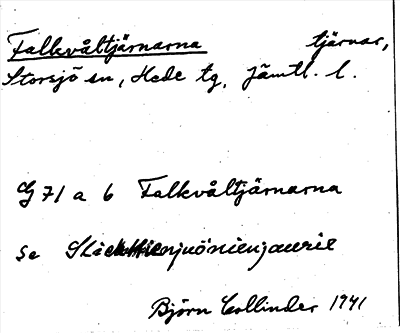 Falkvåltjärnarna tjärnar,
Storsjö sn, Hede tg, Jämtl. l.
G 71 a b Falkvåltjärnarna
Se
Björn Collinder 1941